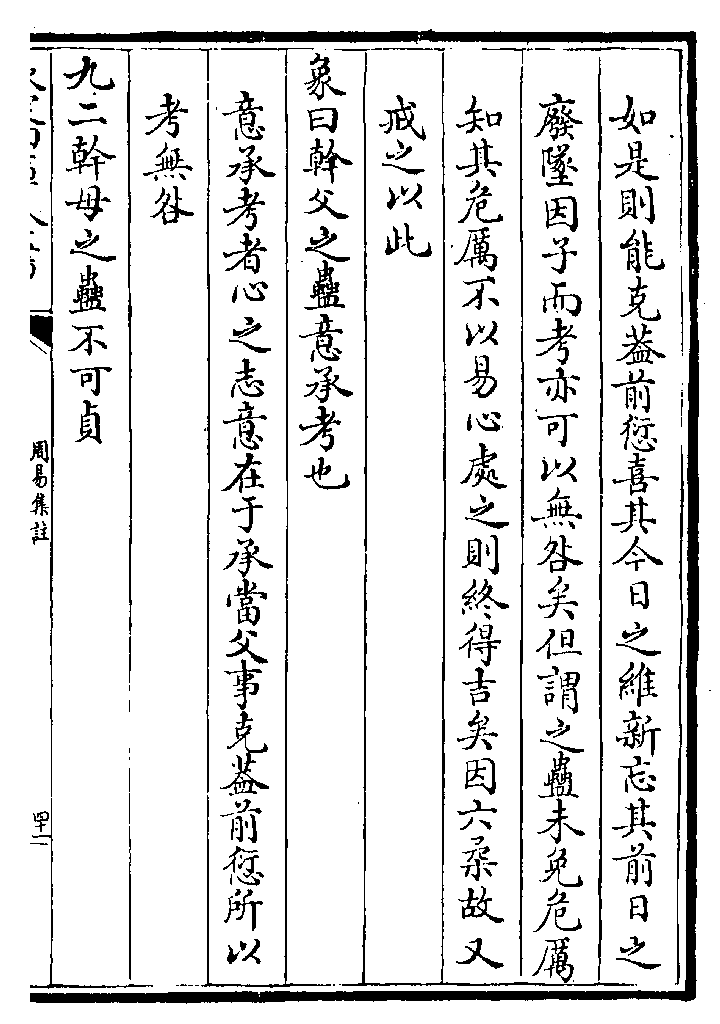 如是則能克葢前愆喜其今日之維新忘其前日之
廢墜因子而考亦可以無咎矣但謂之蠱未免危厲
知其危厲不以易心處之則終得吉矣因六柔故又
戒之以此
象曰幹父之蠱意承考也
意承考者心之志意在于承當父事克葢前愆所以
考無咎
九二幹母之蠱不可貞
周易集註